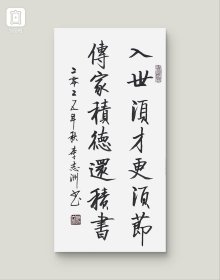 入世須才更須節
傳家積德還積書
二零二一年秋 李志洲書